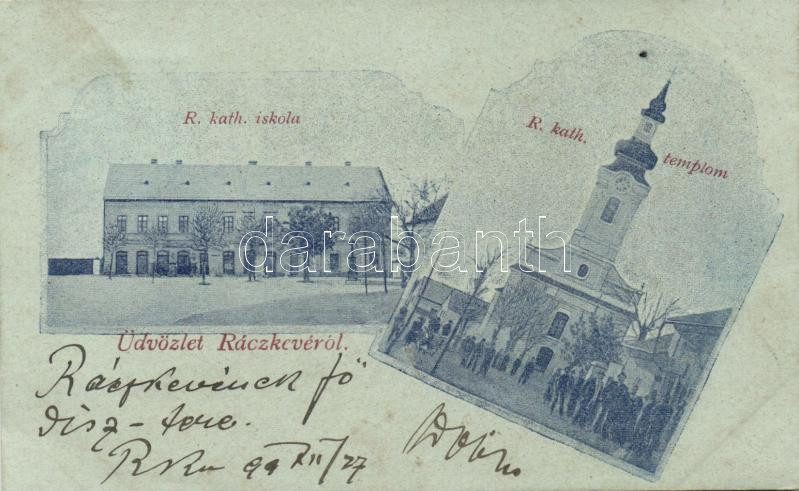 R. kath. iskola
R. kath.
templom
darabanth
Üdvözlet Ráczkevéről.
Ráczkevének fő
disz-tere.
Rkw 99 XII/27